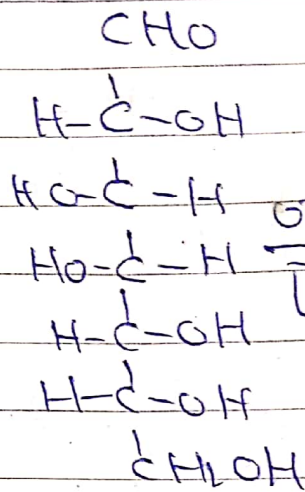 CHO
H-C-OH
HO-C-H
HO-C-H
H-C-OH
H-C-OH
CH2OH